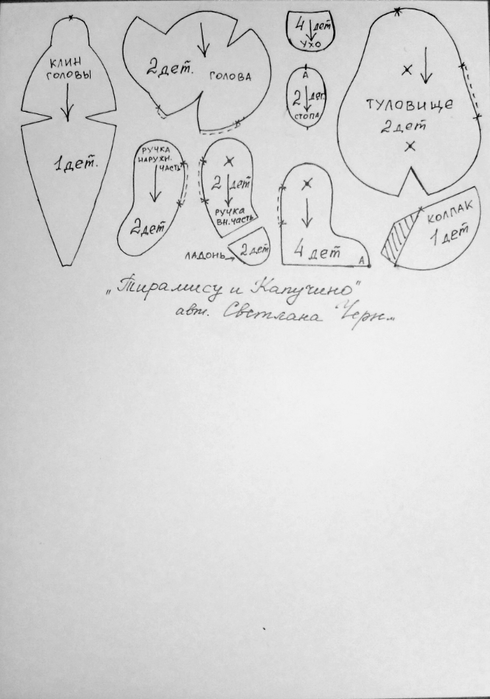 КЛИН
ГОЛОВЫ
1 дет.
2 дет.
ГОЛОВА
4 дет
УХО
А
2 дет
СТОПА
ТУЛОВИЩЕ
2 дет
РУЧКА
НАРУЖН.
ЧАСТЬ
2 дет
2 дет
РУЧКА
ВН. ЧАСТЬ
ЛАДОНЬ
2 дет
4 дет
А
КОЛПАК
1 дет
„Тирамису и Капучино"
авт. Светлана Черн..